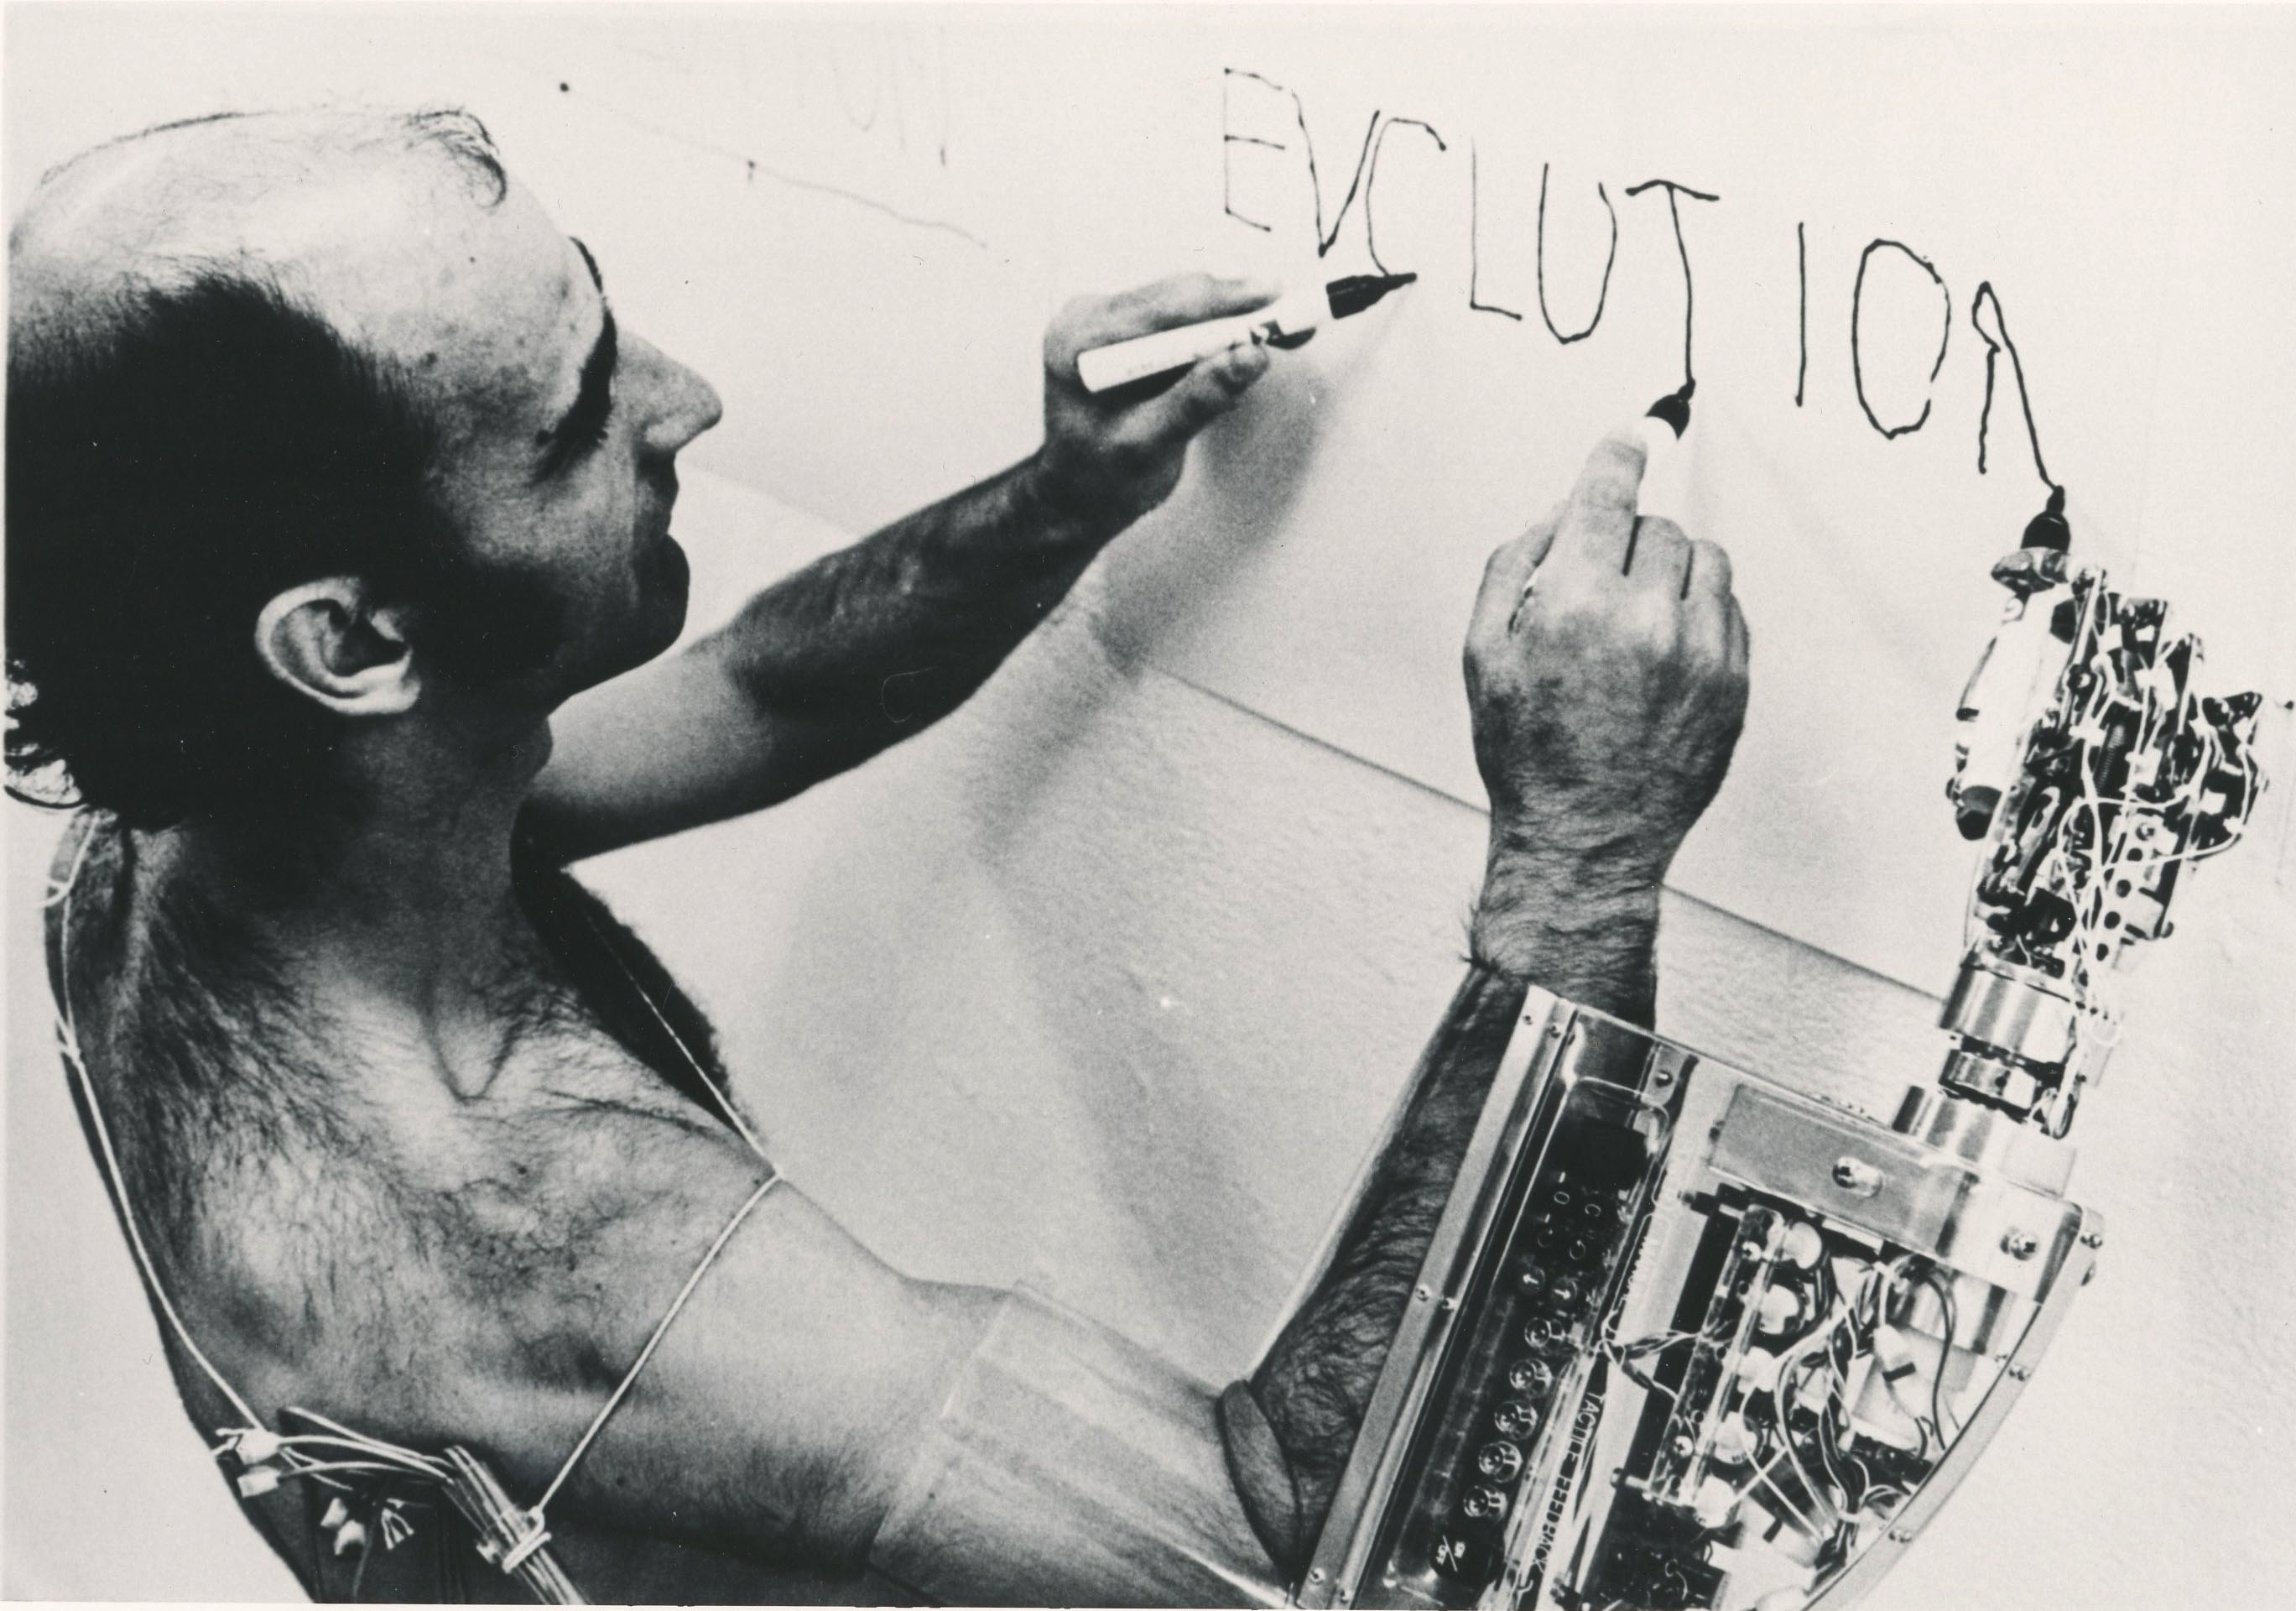 EVOLUTION
TACTILE FEEDBACK